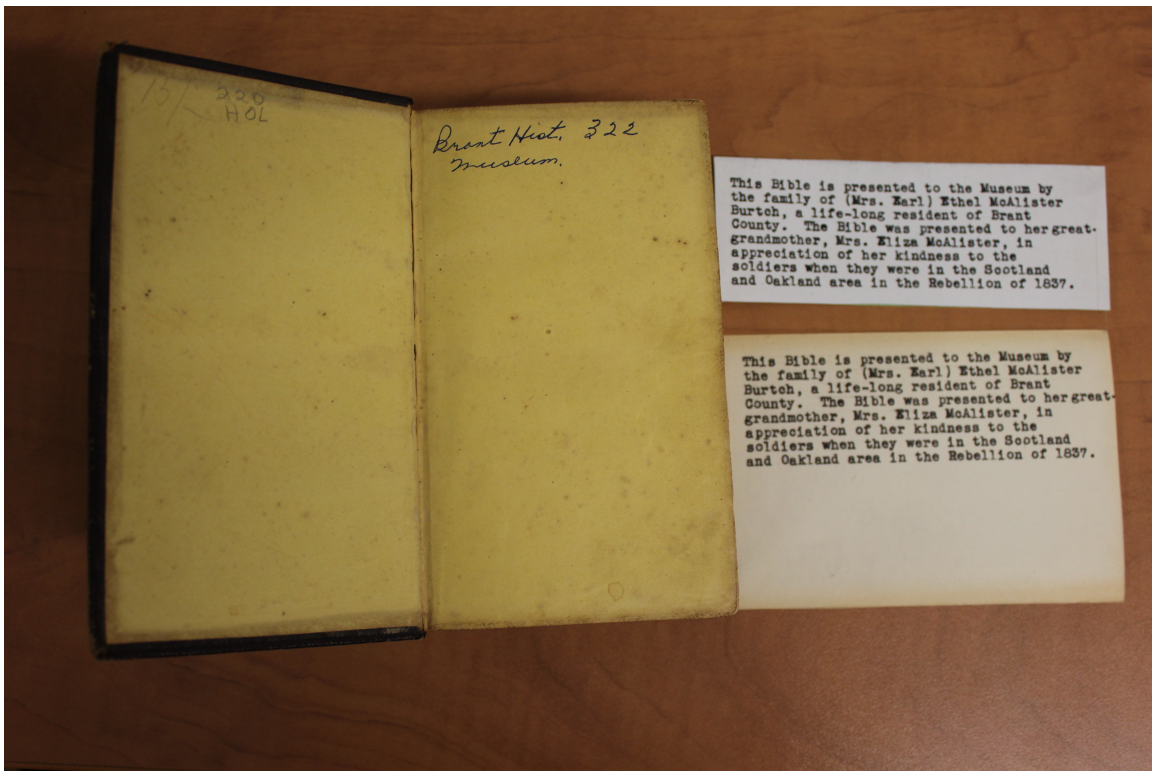 220
HOL
Brant Hist. 322
Museum.
This Bible is presented to the Museum by
the family of (Mrs. Earl) Ethel McAlister
Burtch, a life-long resident of Brant
County.  The Bible was presented to her great-
grandmother, Mrs. Eliza McAlister, in
appreciation of her kindness to the
soldiers when they were in the Scotland
and Oakland area in the Rebellion of 1837.
This Bible is presented to the Museum by
the family of (Mrs. Earl) Ethel McAlister
Burtch, a life-long resident of Brant
County.  The Bible was presented to her great-
grandmother, Mrs. Eliza McAlister, in
appreciation of her kindness to the
soldiers when they were in the Scotland
and Oakland area in the Rebellion of 1837.